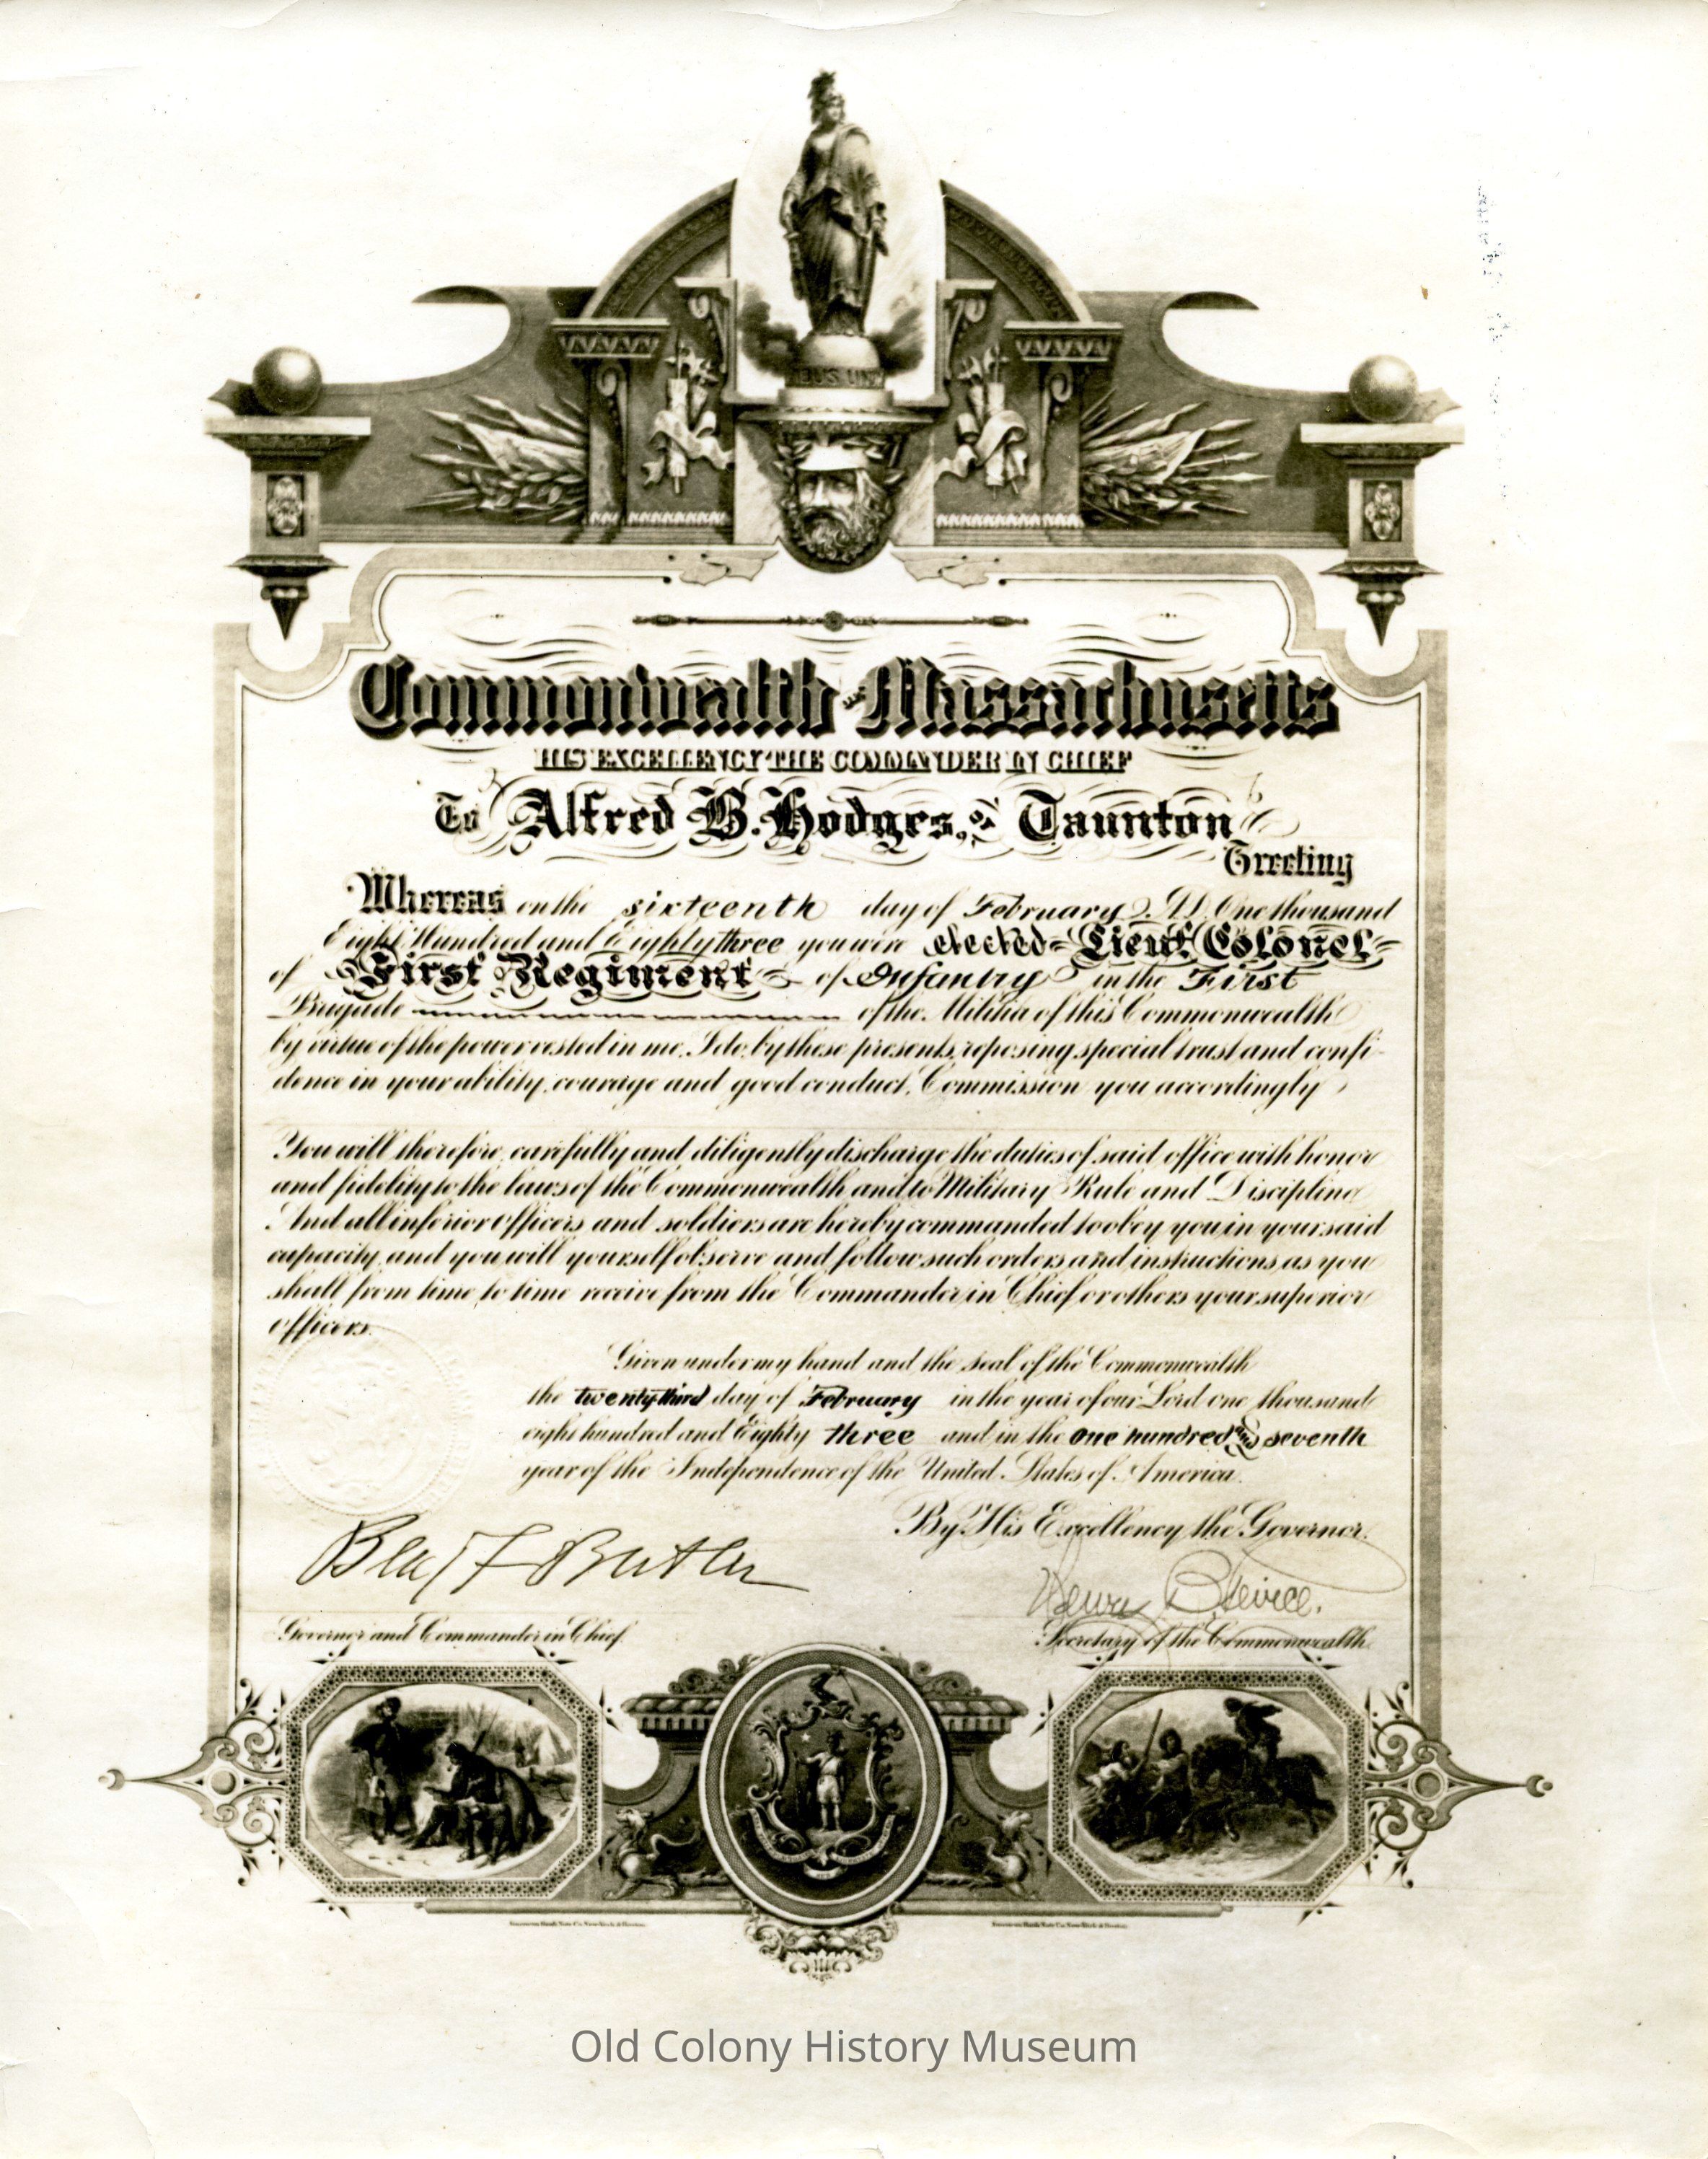 BUS UN
Commonwealth of Massachusetts
HIS EXCELLENCY THE COMMANDER IN CHIEF
To Alfred B. Hodges, of Taunton
Greeting
Whereas on the sixteenth day of February A.D. One thousand
Eight Hundred and Eighty three you were elected Lieut. Colonel
of First Regiment of Infantry in the First
Brigade of the Militia of this Commonwealth
by virtue of the power vested in me, I do, by these presents, reposing special trust and confi-
dence in your ability, courage and good conduct, Commission you accordingly
You will therefore, carefully and diligently discharge the duties of said office with honor
and fidelity to the laws of the Commonwealth and to Military Rule and Discipline
And all inferior officers and soldiers are hereby commanded to obey you in your said
capacity, and you will yourself observe and follow such orders and instructions, as you
shall from time to time receive from the Commander in Chief or others your superior
officers.
Given under my hand and the seal of the Commonwealth
the twenty third day of February in the year of our Lord one thousand
eight hundred and Eighty three and in the One hundred and seventh
year of the Independence of the United States of America.
By His Excellency the Governor.
Benj F Butler
Henry B Peirce.
Governor and Commander in Chief
Secretary of the Commonwealth.
Old Colony History Museum